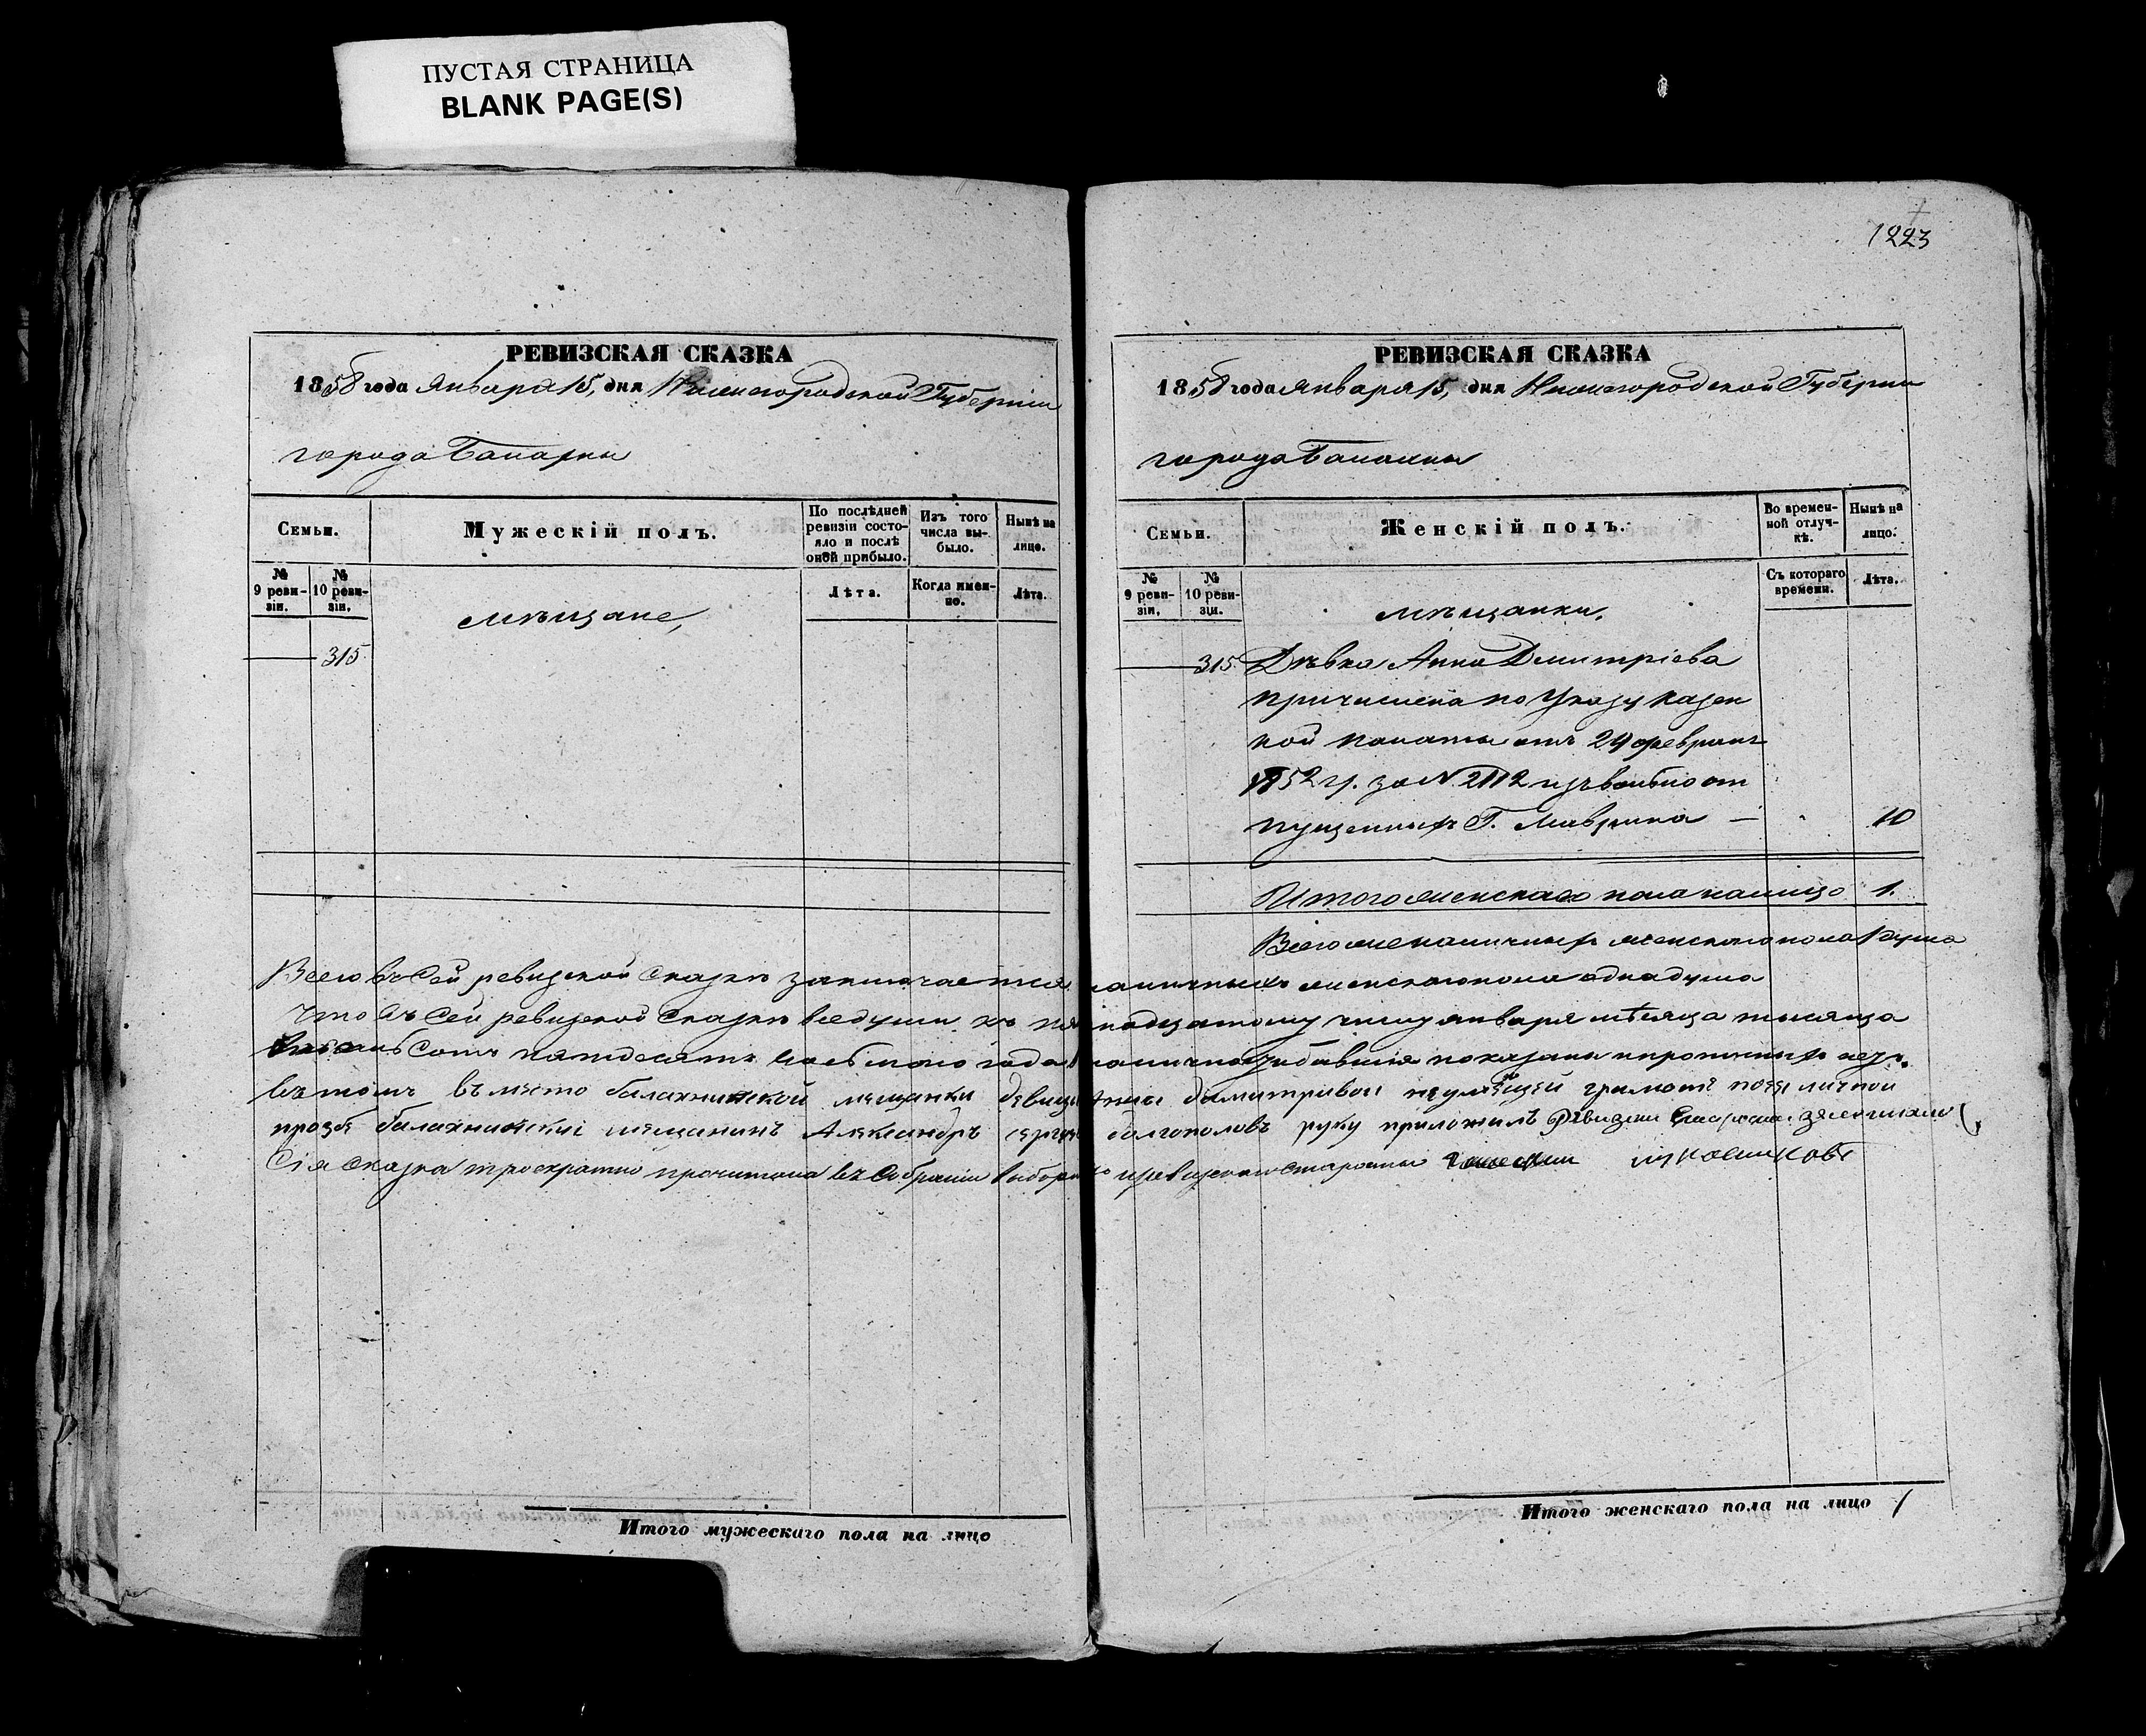 ПУСТАЯ СТРАНИЦА
BLANK PAGE(S)
РЕВИЗСКАЯ СКАЗКА
1858 года Января 15, дня Нижегородской Губерніи
города Балахны
Семьи.
Мужескій полъ.
По послѣдней ревизіи состояло и послѣ оной прибыло.
Изъ того числа выбыло.
Нынѣ на лицо.
№ 9 ревизіи.
№ 10 ревизіи.
мѣщане,
Лѣта.
Когда именно.
Лѣта.
315
Итого мужескаго пола на лицо
1223
РЕВИЗСКАЯ СКАЗКА
1858 года Января 15, дня Нижегородской Губерніи
города Балахны
Семьи.
Женскій полъ.
Во временной отлучкѣ.
Нынѣ на лицо.
№ 9 ревизіи.
№ 10 ревизіи.
мѣщанки.
Съ котораго времени.
Лѣта.
315. Дѣвка Анна Дмитріева
причислена по Указу Казен
ной палаты отъ 29 февраля
1852 г. за № 2112 изъ вольноот
пущенныхъ Г. Маврина — 10
Итого женскаго пола налицо 1.
Всего наличныхъ женскаго пола 1 душа
Всего въ сей ревизской сказкѣ заключается наличныхъ женскаго пола одна душа
Что въ сей ревизской сказкѣ все души къ пятнадцатому числу января мѣсяца тысяща
восемьсотъ пятдесятъ восьмаго года показаны и прописныхъ нетъ.
Въ томъ въ место балахнинской мещанки девицы Анны Дмитривой неумеющей грамоте по ея личной
прозбе балахнинскиі мещанинъ Александръ долгополовъ руку приложилъ
Сія сказка троекратно прочитана въ собраніи выборнаго и ревизскаго старосты
Итого женскаго пола на лицо 1